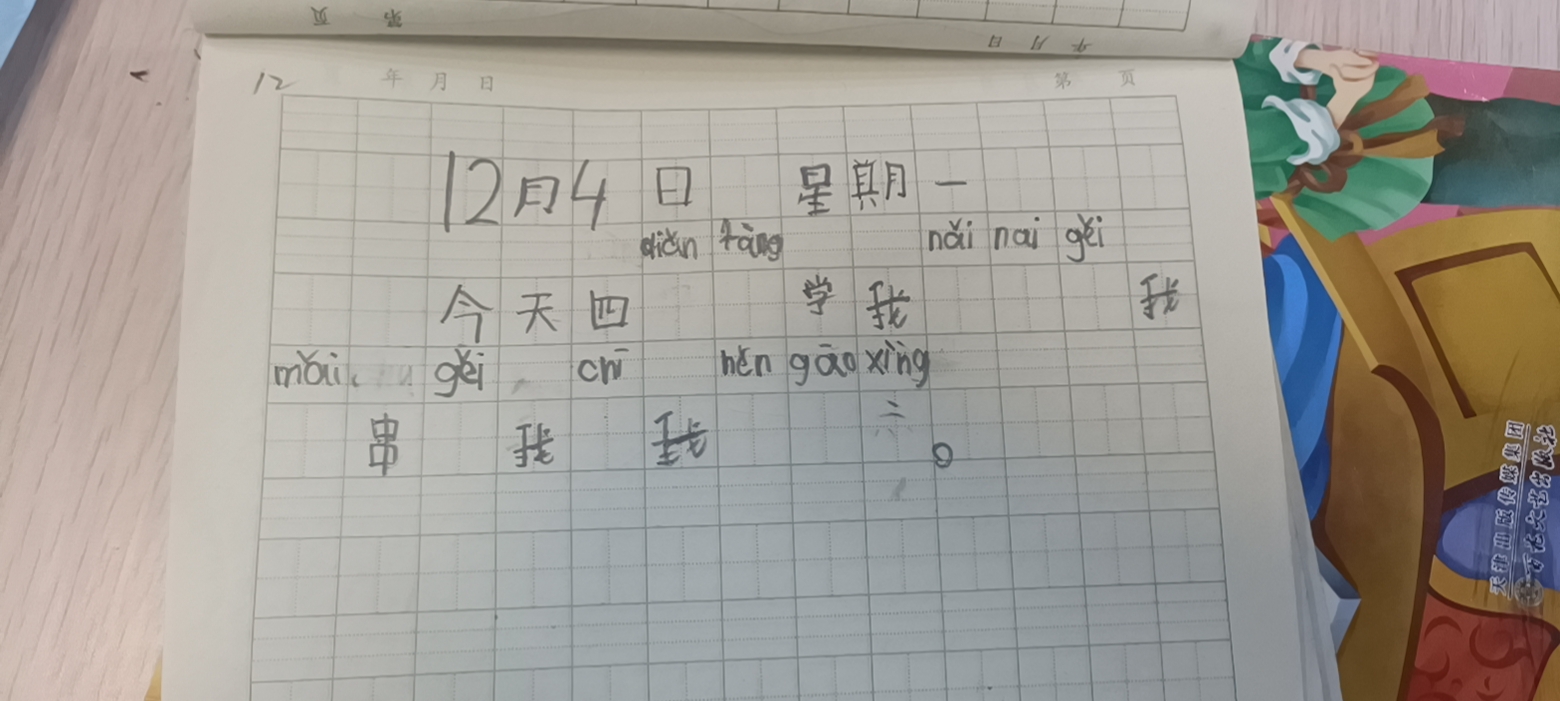 第 页
年 月 日
12 年 月 日 第 页
12月4日 星期一
diǎn fàng nǎi nai gěi
今天四 学我 我
mǎi gěi chī hěn gāo xìng
串 我 我 。
天津出版传媒集团
百花文艺出版社